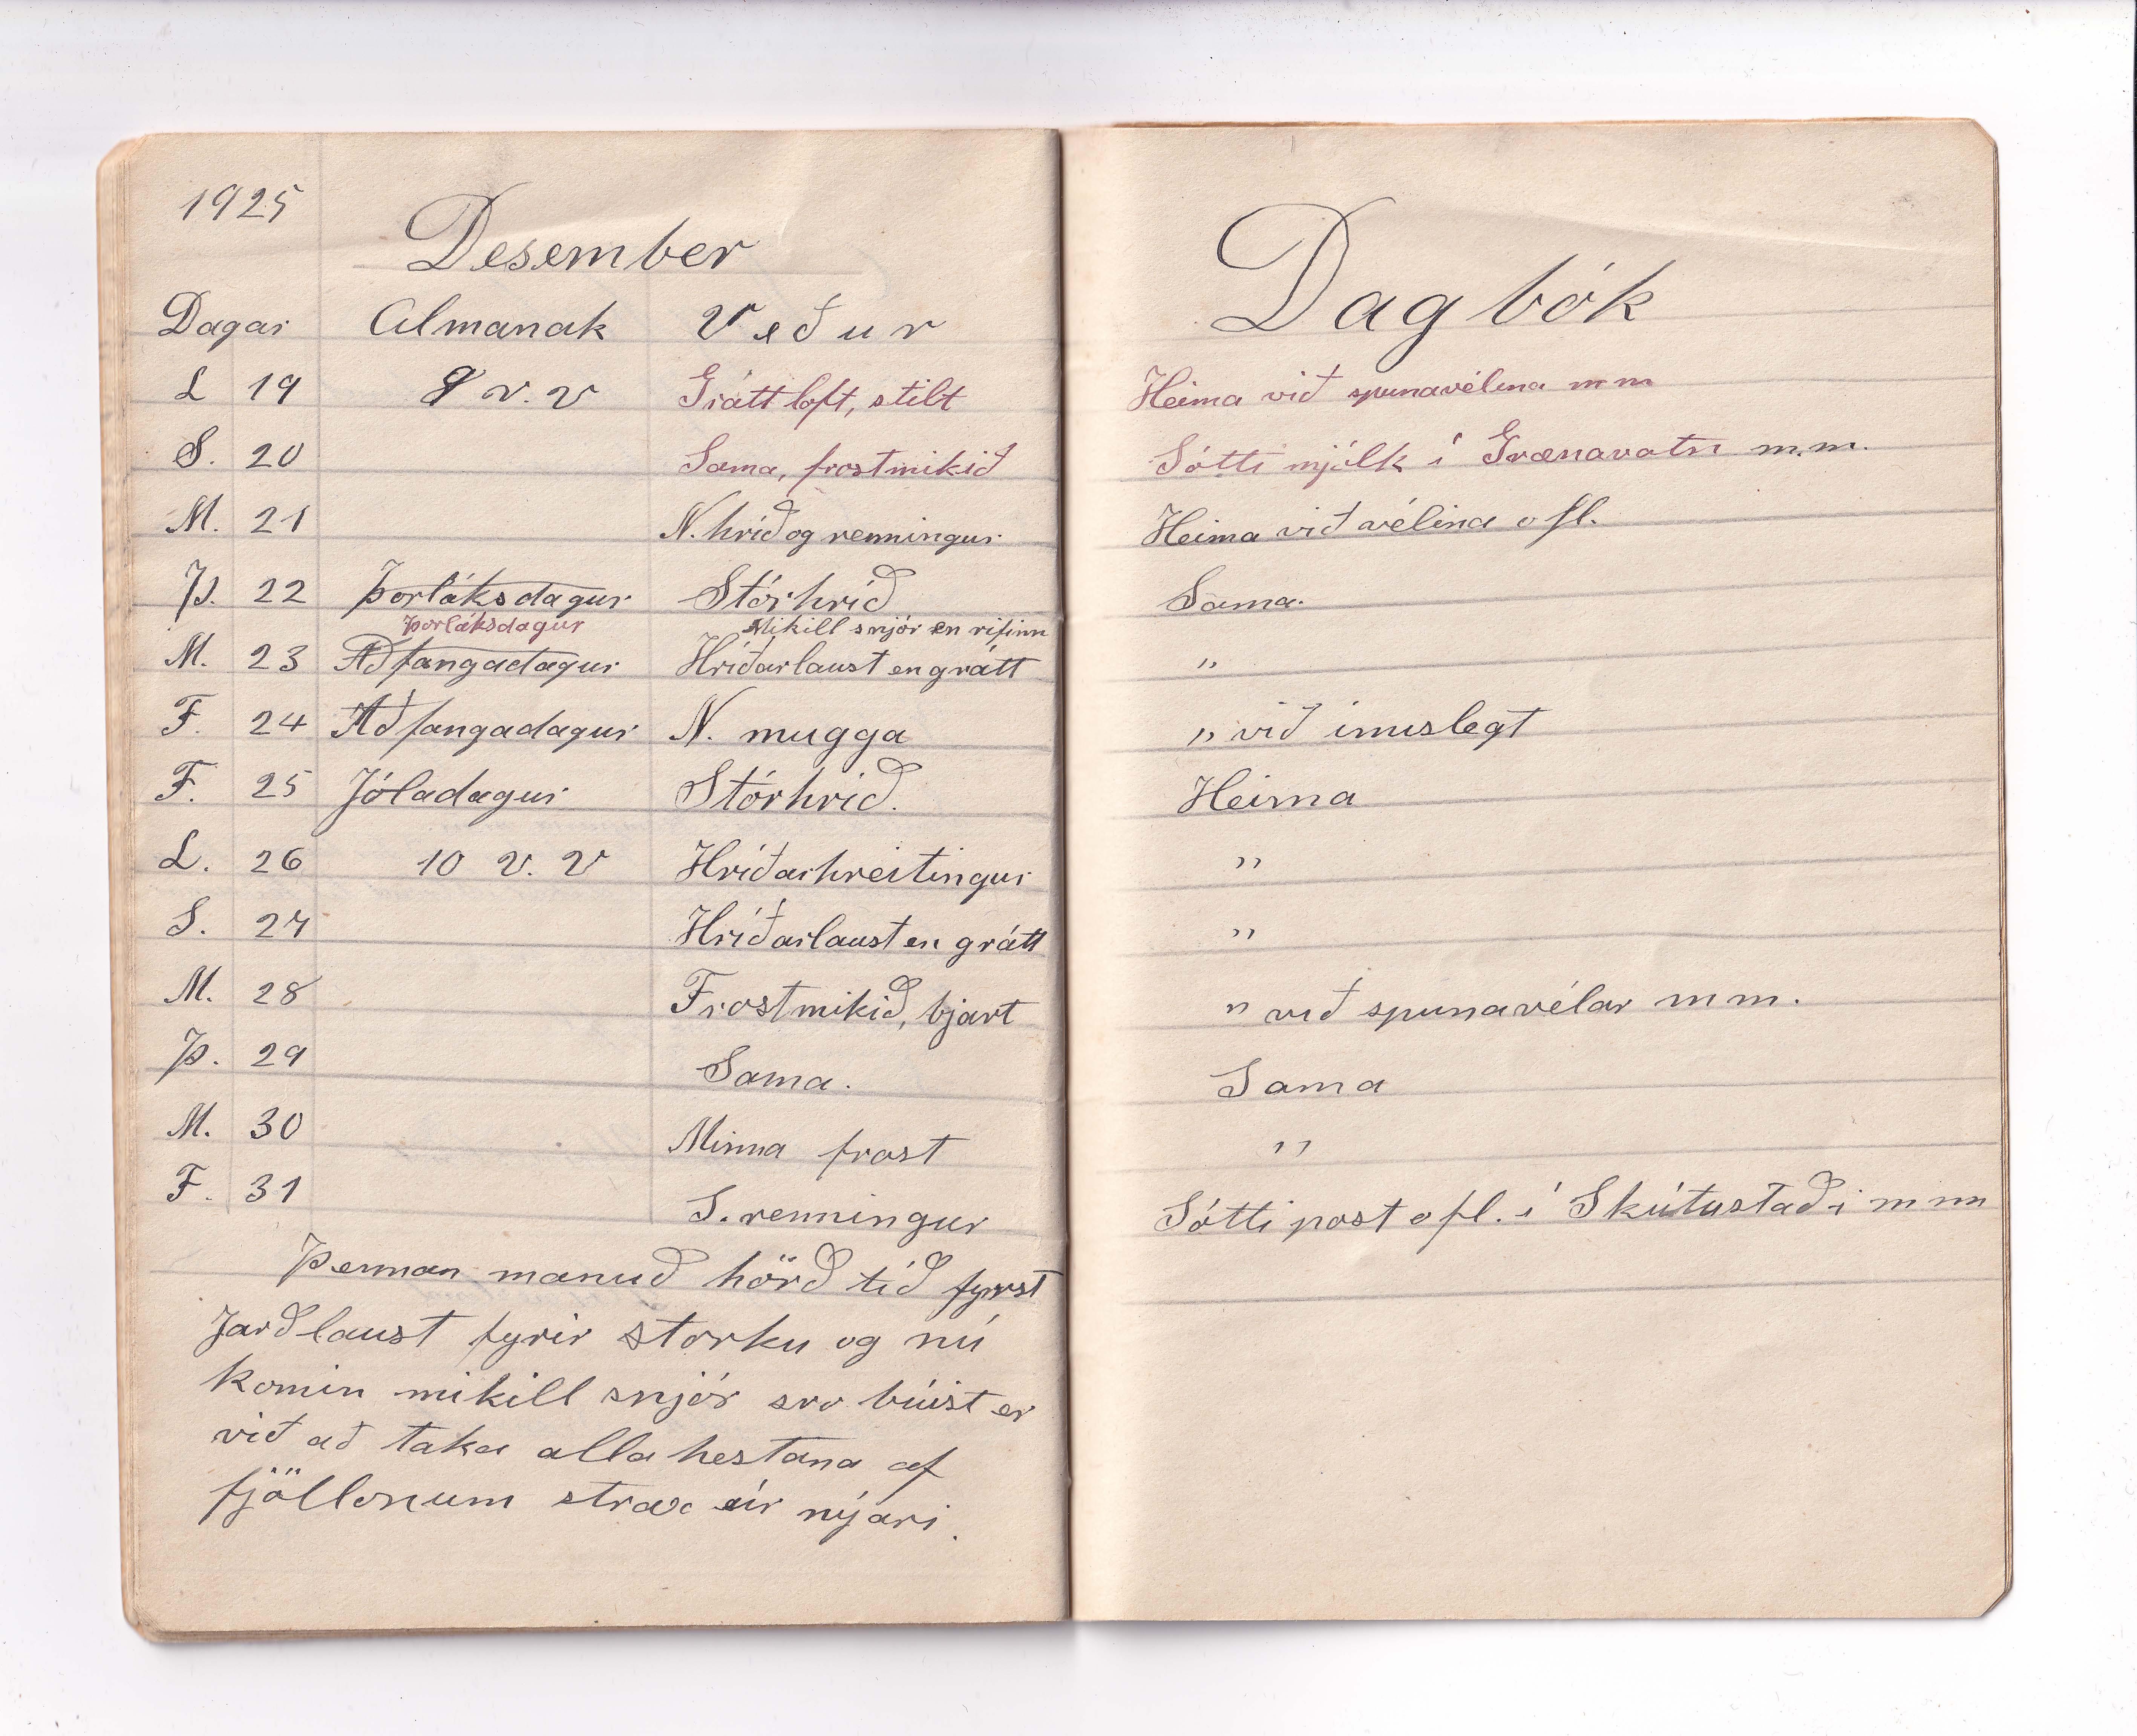 1925
Desember
Dagar Almanak Veður
L 19 9 v. v Grátt loft, stilt
S. 20 Sama, frostmikið
M. 21 N. hríð og renningur
Þ. 22 Þorláksdagur Stórhríð
Þorláksdagur Mikill snjór en rifinn
M. 23 Aðfangadagur Hríðarlaust en grátt
F. 24 Aðfangadagur N. mugga
F. 25 Jóladagur Stórhríð.
L. 26 10 v. v Hríðarhreitingur
S. 27 Hríðarlaust en grátt
M. 28 Frostmikið, bjart
Þ. 29 Sama.
M. 30 Minna frost
F. 31 S. renningur
Þennan manuð hörð tíð fyrst
Jarðlaust fyrir storku og nú
komin mikill snjór svo búist er
við að taka alla hestana af
fjöllonum strax úr nýári.
Dagbók
Heima við spunavélina mm
Sótti mjólk í Grænavatn m.m.
Heima við vélina ofl.
Sama.
"
" við ímislegt
Heima
"
"
" við spunavélar mm.
Sama
"
Sótti post ofl. í Skútustaði mm